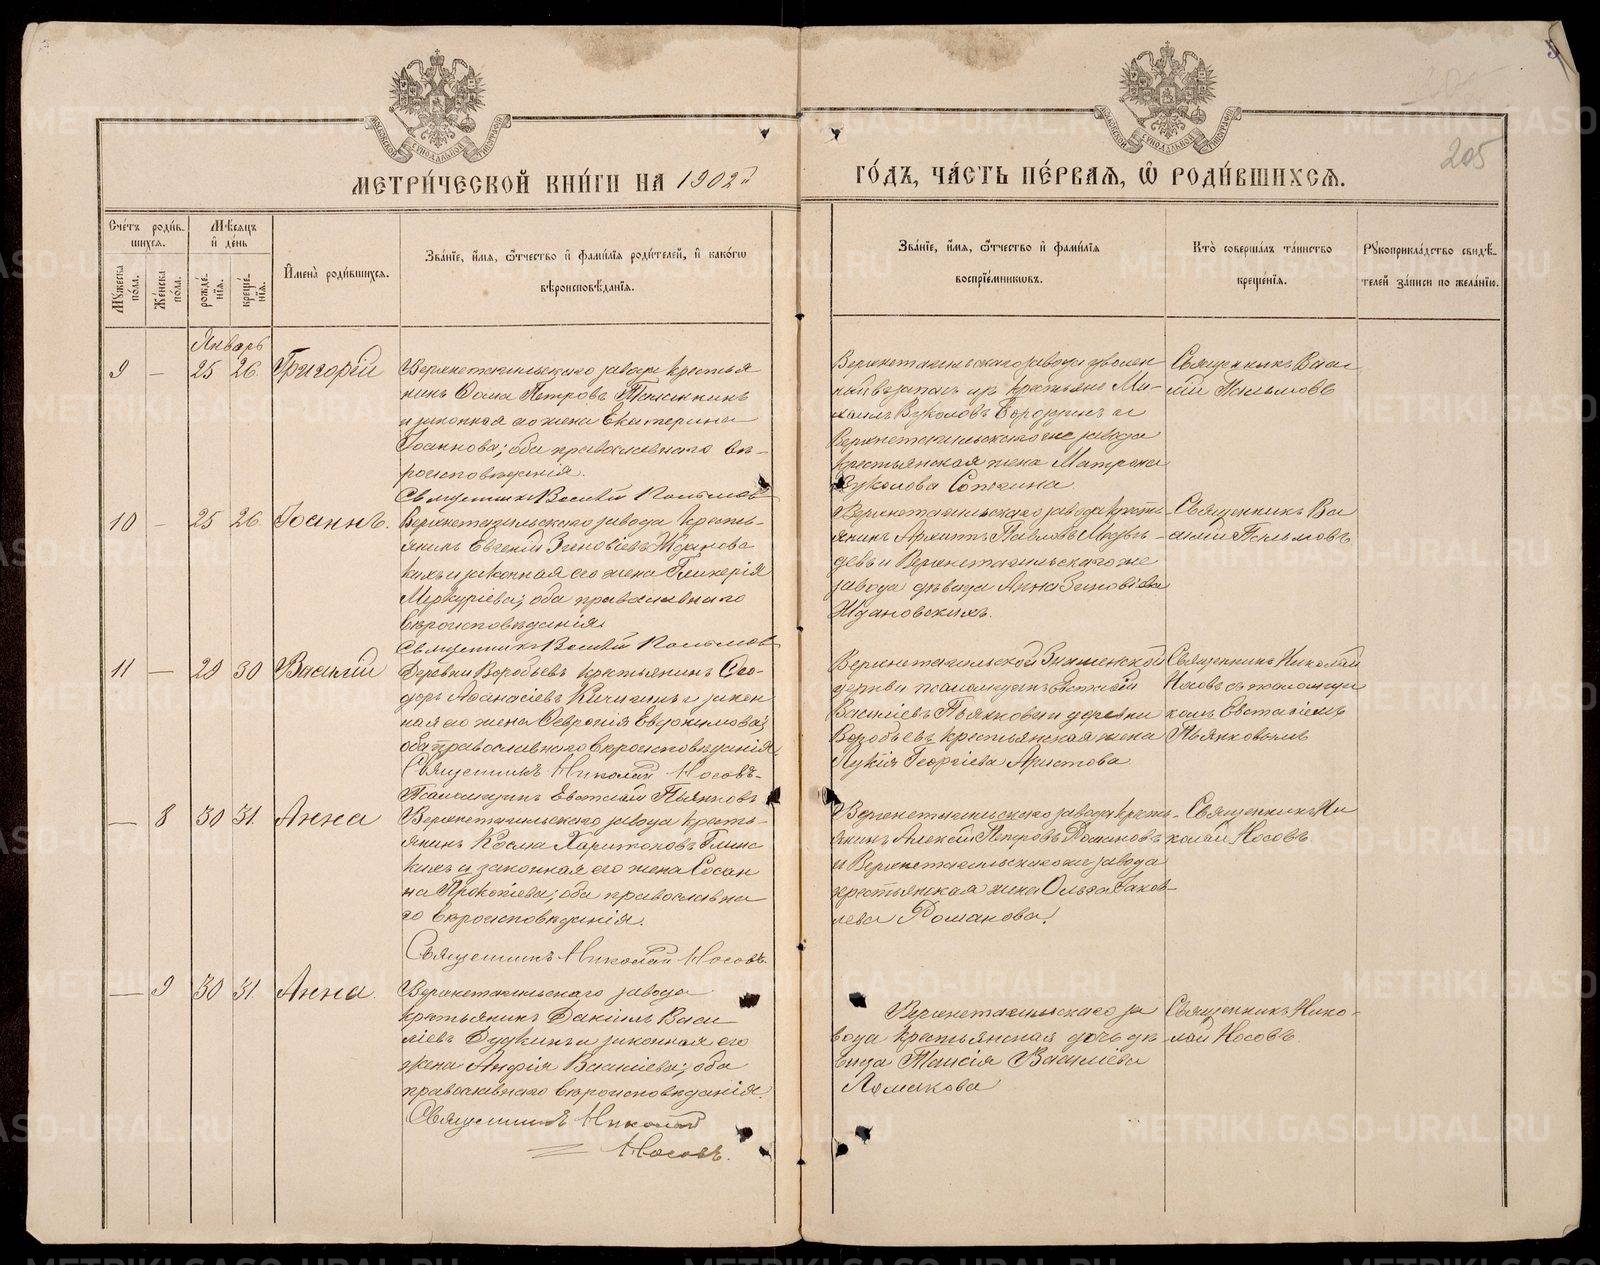 МЕТРИ́ЧЕСКОЙ КНИ́ГИ НА 1902й
ГО́ДЪ, ЧА́СТЬ ПЕ́РВАЯ, Ѡ РОДИ́ВШИХСЯ.
205
МОСКОВСКОЙ СѴНОДАЛЬНОЙ ТИПОГРАФІИ
МОСКОВСКОЙ СѴНОДАЛЬНОЙ ТИПОГРАФІИ
Сче́тъ роди́в-
шихся.
Мꙋ́жеска по́ла.
Же́нска по́ла.
Мѣ́сяцъ
и҆ де́нь
рожде́нїя.
креще́нїя.
И҆мена̀ роди́вшихся.
Зва́нїе, и҆́мя, ѻ҆́тчество и҆ фами́лїя роди́телей, и҆ како́гѡ
вѣроисповѣ́данїя.
Зва́нїе, и҆́мя, ѻ҆́тчество и҆ фами́лїя
воспрїе́мникѡвъ.
Кто̀ соверша́лъ та́инство
креще́нїя.
Рꙋкоприкла́дство свидѣ́-
телей за́писи по жела́нїю.
Январь
9 — 25 26. Григорій
Верхнетагильскаго завода крестья
нинъ Ѳома Петровъ
и законная его жена Екатерина
Іоаннова; оба православнаго вѣ-
роисповѣданія.
Священникъ Василій
Верхнетагильскаго завода уволен-
ный въ запасъ изъ крестьянъ Ми-
хаилъ Вуколовъ Бородинъ и
Верхнетагильскаго же завода
крестьянская жена Матрона
Вуколова
Священникъ Васи
лій
10 — 25 26. Іоаннъ.
Верхнетагильскаго завода кресть-
янинъ Евгеній Зиновіевъ Ждановс
кихъ и законная его жена Гликерія
Меркуріева; оба православнаго
вѣроисповѣданія.
Священникъ Василій
Верхнетагильскаго завода кресть
янинъ Архипъ Павловъ Медвѣ-
девъ и Верхнетагильскаго же
завода дѣвица Анна Зиновіева
Ждановскихъ.
Священникъ Ва
силій
11 — 29 30 Василій
Деревни Воробьевъ крестьянинъ Ѳео-
доръ Аѳанасіевъ Кичигинъ и закон
ная его жена Февронія Евдокимова;
оба православнаго вѣроисповѣданія
Священникъ Николай Носовъ.
Псаломщикъ Евстафій Пьянковъ
Верхнетагильской Знаменской
церкви псаломщикъ Евстафій
Василіевъ Пьянковъ и деревни
Воробьевъ крестьянская жена
Лукія Георгіева Аристова
Священникъ Николай
Носовъ съ псаломщи
комъ Евстафіемъ
Пьянковымъ
— 8 30 31. Анна
Верхнетагильскаго завода кресть-
янинъ Косма Харитоновъ Глинс
кихъ и законная его жена Сосан
на Прокопіева; оба православна
го вѣроисповѣданія.
Священникъ Николай Носовъ.
Верхнетагильскаго завода кресть-
янинъ Алексій Петровъ
и Верхнетагильскаго же завода
крестьянская жена Ольга Іаков-
лева Романова.
Священникъ Ни
колай Носовъ.
— 9 30 31. Анна.
Верхнетагильскаго завода
крестьянинъ Даніилъ Васи
ліевъ Дудкинъ и законная его
жена Анфія Василіева; оба
православнаго вѣроисповѣданія.
Священникъ Николай
Носовъ.
Верхнетагильскаго за
вода крестьянская дочь дѣ
вица Таисія Василіева
Ломакова
Священникъ Нико-
лай Носовъ.
METRIKI.GASO-URAL.RU